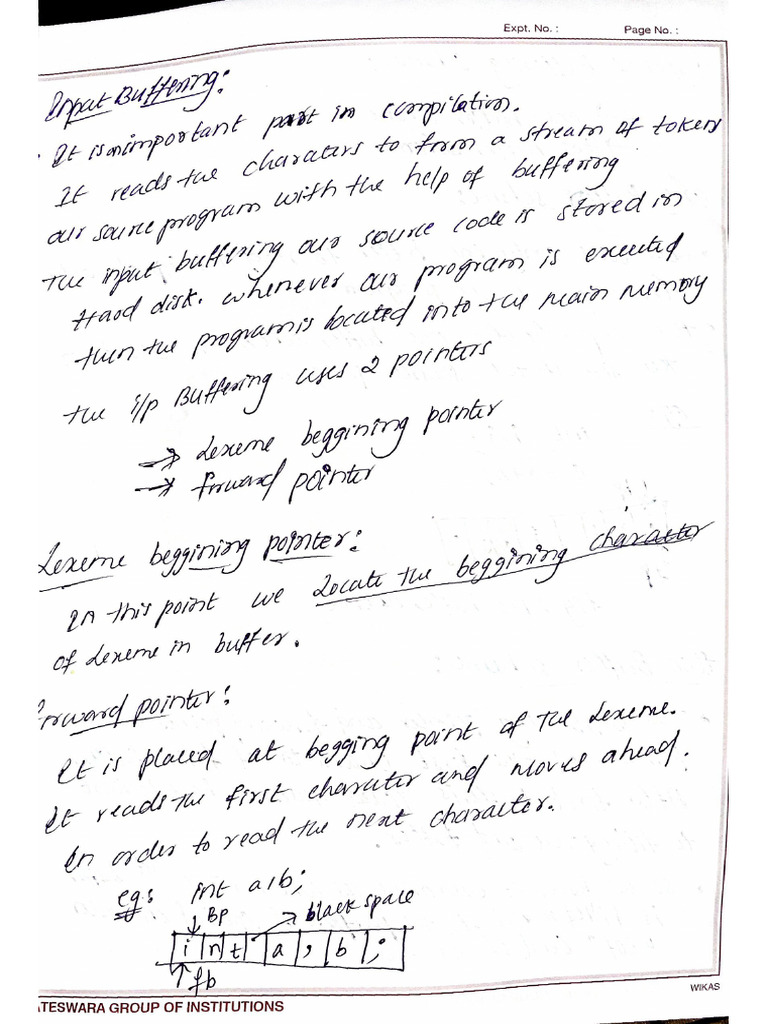 Expt. No. : Page No. :
Input Buffering:
It is an important part in compilation.
It reads the charaters to from a stream of tokens
our source program with the help of buffering
The input buffering our source code is stored in
Hard disk. whenever our program is executed
then the program is located into the main memory
The i/p Buffering uses 2 pointers
→ Lexeme beggining pointer
→ forward pointer
Lexeme beggining pointer:
In this point we Locate the beggining character
of Lexeme in buffer.
Forward pointer:
It is placed at begging point of the Lexeme.
It reads the first charater and moves ahead.
In order to read the next character.
eg: int a,b;
↓ BP → black space
i n t a , b ;
↑ fb
ATESWARA GROUP OF INSTITUTIONS
WIKAS